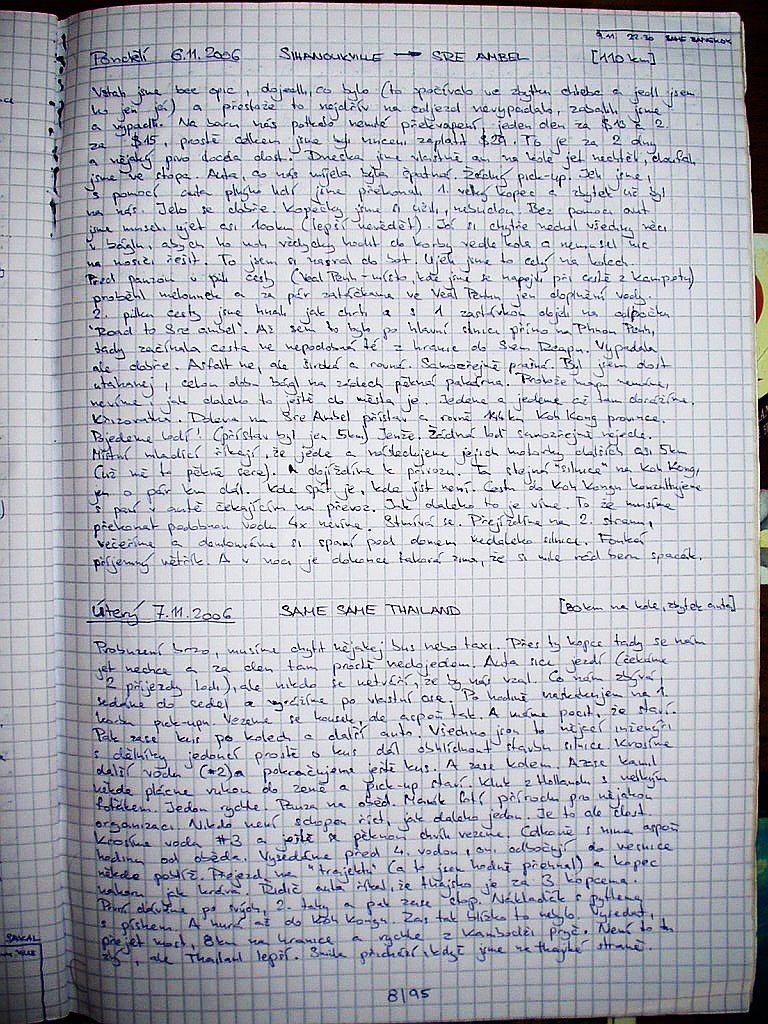 9.11. 22.30 SAME BANGKOK
Pondělí 6.11.2006 SIHANOUKVILLE → SRE AMBEL [110 km]
Vstali jsme bez opic, dojedli, co bylo (to spočívalo ve zbytku chleba a jedl jsem
ho jen já) a přestože to nejdřív na odjezd nevypadalo, zabalili jsme
a vypadli. Na baru nás potkalo nemilé překvapení, jeden den za $13 a 2.
za $15, prostě celkem jsme byli nuceni zaplatit $29. To je za 2 dny
a nějaký pivo docela dost. Dneska jsme vlastně ani na kole jet nechtěli, doufali
jsme ve stopa. Auta, co nás míjela byla špatná. Žádný pick-up. Jeli jsme,
s pomocí cuda plnýho lidí jsme překonali 1. velký kopec a zbytek už byl
na nás. Jelo se dobře. Kopečky jsme si užili, nebudou. Bez pomoci aut
jsme museli ujet asi 100km (lepší nevědět). Já si chytře nechal všechny věci
v báglu, abych ho moh vždycky hodit do korby vedle kola a nemusel nic
na nosiči řešit. To jsem si nasral do bot. Ujeli jsme to celý na kolech.
Před pauzou v půli cesty (Veal Renh - místo, kde jsme se napojili při cestě z Kampotu)
proběhl melounek a za pár zatáčkama ve Veal Renhu jen doplnění vody.
2. půlku cesty jsme hnali jak chrti a s 1 zastávkou dojeli na odbočku
"Road to Sre ambel". Až sem to bylo po hlavní silnici přímo na Phnom Penh,
tady začínala cesta ne nepodobná té z hranic do Siem Reapu. Vypadala
ale dobře. Asfalt ne, ale široká a rovná. Samozřejmě prašná. Byl jsem dost
utahanej, celou dobu bágl na zádech pěkná pakárna. Protože mapu nemáme,
nevíme, jak daleko to ještě do města je. Jedeme a jedeme až tam dorazíme.
Křižovatka. Doleva na Sre Ambel přístav a rovně 14km Koh Kong province.
Pojedeme lodí! (přístav byl jen 5km) Jenže. Žádná loď samozřejmě nejede.
Místní mladíci říkají, že jede a následujeme jejich motorky dalších asi 5km
(už mě to pěkně sere). A dojíždíme k přívozu. Ta stejná "silnice" na Koh Kong,
jen o pár km dál. Kde spát je, kde jíst není. Cestu do Koh Kongu konzultujeme
s paní v autě čekajícím na převoz. Jak daleko to je víme. To že musíme
překonat podobnou vodu 4x nevíme. Stmívá se. Přejíždíme na 2. stranu,
večeříme a domlouváme si spaní pod domem nedaleko silnice. Fouká
příjemný větřík. A v noci je dokonce taková zima, že si mile rád beru spacák.
Úterý 7.11.2006 SAME SAME THAILAND [80km na kole, zbytek auta]
Probuzení brzo, musíme chytit nějakej bus nebo taxi. Přes ty kopce tady se nám
jet nechce a za den tam prostě nedojedem. Auta sice jezdí (čekáme
2 příjezdy lodi), ale nikdo se netváří, že by nás vzal. Co nám zbývá,
sedáme do sedel a vyrážíme po vlastní ose. Po hodině naskakujem na 1.
korbu pick-upu. Vezeme se kousek, ale aspoň tak. A máme pocit, že staví.
Pak zase kus po kolech a další auto. Všechno jsou to nějací inženýři
s dělníky jedoucí prostě o kus dál obhlídnout stavbu silnice. Krosíme
další vodu (#2) a pokračujeme ještě kus. A zase kolem. A zase Kamil
někde plácne rukou do země a pick-up staví. Kluk z Hollandu s velkým
foťákem. Jedou rychle. Pauza na oběd. Maník fotí přírodu pro nějakou
organizaci. Nikdo není schopen říct, jak daleko jedou. Je to ale dost.
Krosíme voda #3 a ještě se pěknou chvíli vezeme. Celkově s nima aspoň
hodinu od oběda. Vysedáme před 4. vodou, oni odbočují do vesnice
někde poblíž. Přejezd na "trajektu" (a to jsem hodně přehnal) a kopec
nahoru jak kráva. Řidič auta říkal, že thajsko je za 3 kopcema.
První dáváme po svých, 2. taky a pak zase stop. Náklaďák s pytlema
s pískem. A hurá až do Koh Kongu. Zas tak blízko to nebylo. Vysedat,
přejet most, 8km na hranice a rychle z Kambodži pryč. Není to tu
ale Thailand lepší. Smile přichází, když jsme na thajské straně.
8/95